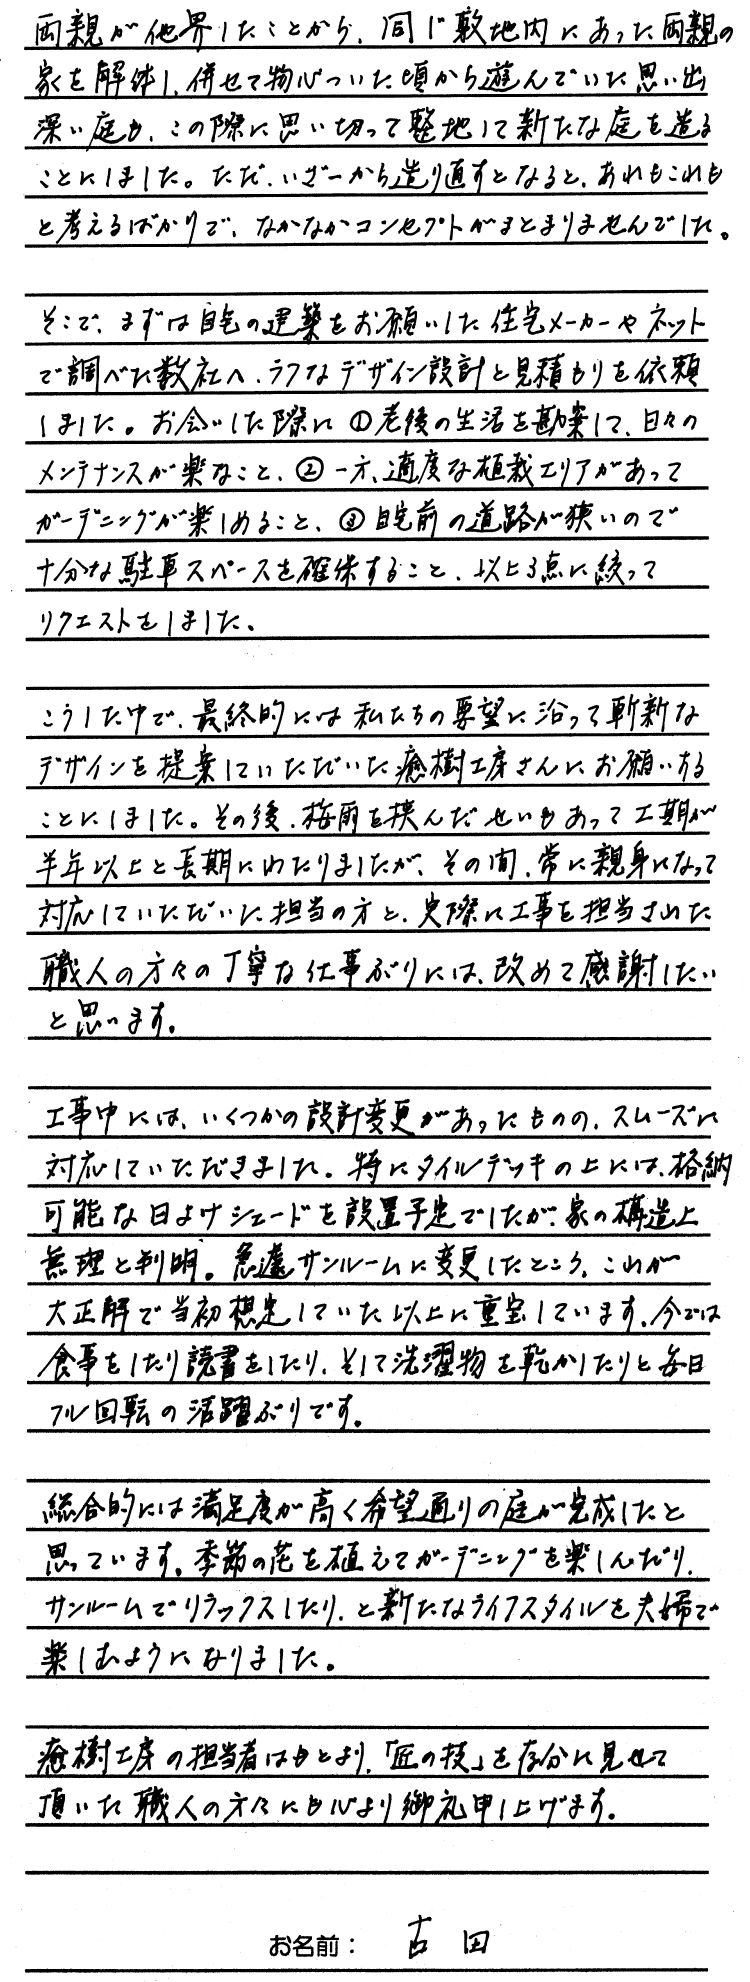 両親が他界したことから、同じ敷地内にあった両親の
家を解体し、併せて物心ついた頃から遊んでいた思い出
深い庭も、この際に思い切って整地して新たな庭を造る
ことにしました。ただ、いざ一から造り直すとなると、あれもこれも
と考えるばかりで、なかなかコンセプトがまとまりませんでした。
そこで、まずは自宅の建築をお願いした住宅メーカーやネット
で調べた数社へ、ラフなデザイン設計と見積もりを依頼
しました。お会いした際に①老後の生活を勘案して、日々の
メンテナンスが楽なこと、②一方、適度な植栽エリアがあって
ガーデニングが楽しめること、③自宅前の道路が狭いので
十分な駐車スペースを確保すること、以上3点に絞って
リクエストをしました。
こうした中で、最終的には私たちの要望に沿って斬新な
デザインを提案していただいた癒樹工房さんにお願いする
ことにしました。その後、梅雨を挟んだせいもあって工期が
半年以上と長期にわたりましたが、その間、常に親身になって
対応していただいた担当の方と、実際に工事を担当された
職人の方々の丁寧な仕事ぶりには、改めて感謝したい
と思います。
工事中には、いくつかの設計変更があったものの、スムーズに
対応していただきました。特にタイルデッキの上には、格納
可能な日よけシェードを設置予定でしたが、家の構造上
無理と判明。急遽サンルームに変更したところ、これが
大正解で当初想定していた以上に重宝しています。今では
食事をしたり読書をしたり、そして洗濯物を乾かしたりと毎日
フル回転の活躍ぶりです。
総合的には満足度が高く希望通りの庭が完成したと
思っています。季節の花を植えてガーデニングを楽しんだり、
サンルームでリラックスしたり、と新たなライフスタイルを夫婦で
楽しむようになりました。
癒樹工房の担当者はもとより、「匠の技」を存分に見せて
頂いた職人の方々にも心より御礼申し上げます。
お名前： 古田